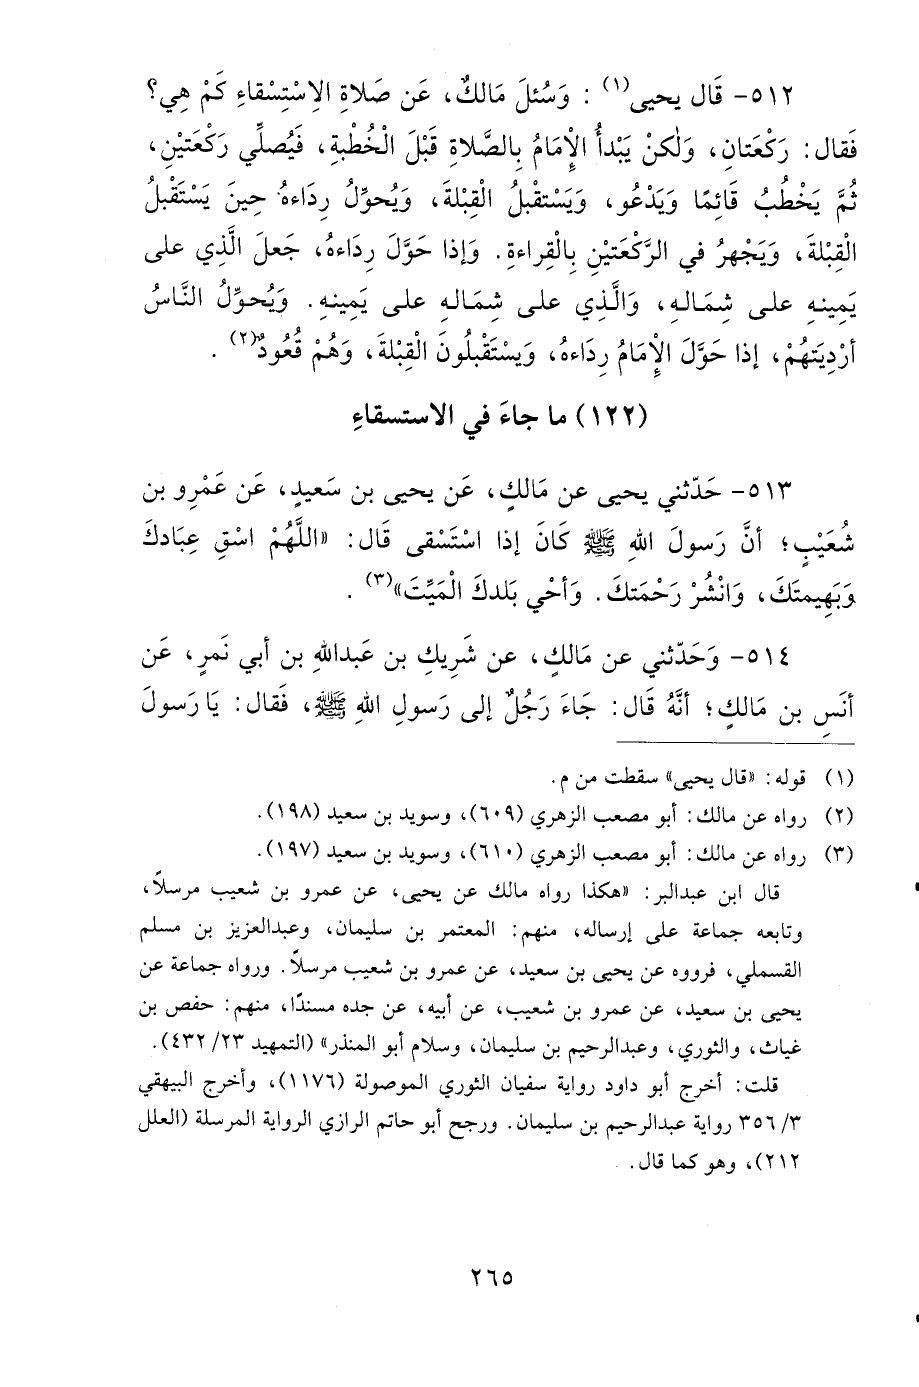 ٥١٢- قَال يحيى(١) : وَسُئلَ مَالكٌ، عَن صَلاةِ الِاسْتِسْقاءِ كَمْ هِي؟
فَقال: رَكْعَتانِ، وَلٰكنْ يَبْدأُ الْإِمَامُ بِالصَّلاةِ قَبْلَ الْخُطْبةِ، فَيُصلِّي رَكْعَتيْنِ،
ثُمَّ يَخْطُبُ قَائِمًا وَيَدْعُو، وَيَسْتقبلُ الْقِبْلةَ، وَيُحوِّلُ رِدَاءهُ حِينَ يَسْتَقْبلُ
الْقِبْلةَ، وَيَجْهرُ في الرَّكْعَتيْنِ بِالْقِراءةِ. وَإذا حَوَّلَ رِدَاءهُ، جَعلَ الَّذي على
يَمِينهِ على شِمَالهِ، وَالَّذي على شِمَالهِ على يَمِينهِ. وَيُحوِّلُ النَّاسُ
أرْدِيَتهُمْ، إذا حَوَّلَ الْإِمَامُ رِدَاءهُ، وَيسْتَقْبلُونَ الْقِبْلةَ، وَهُمْ قُعُودٌ(٢) .
(١٢٢) ما جاءَ في الاستسقاءِ
٥١٣- حَدّثني يحيى عن مَالكٍ، عَن يحيى بن سَعيدٍ، عَن عَمْرِو بن
شُعَيْبٍ؛ أنَّ رَسولَ اللهِ ﷺ كَانَ إذا اسْتَسْقى قَال: «اللَّهُمْ اسْقِ عِبَادكَ
وَبَهِيمتَكَ، وَانْشُرْ رَحْمَتكَ. وَأحْيِ بَلدكَ الْمَيِّتَ»(٣) .
٥١٤- وَحَدّثني عن مَالكٍ، عن شَرِيكِ بن عَبداللهِ بن أبي نَمرٍ، عَن
أنَسِ بن مَالكٍ؛ أنَّهُ قَال: جَاءَ رَجُلٌ إلى رَسولِ اللهِ ﷺ، فَقال: يَا رَسولَ
(١) قوله: «قال يحيى» سقطت من م.
(٢) رواه عن مالك: أبو مصعب الزهري (٦٠٩)، وسويد بن سعيد (١٩٨).
(٣) رواه عن مالك: أبو مصعب الزهري (٦١٠)، وسويد بن سعيد (١٩٧).
قال ابن عبدالبر: «هكذا رواه مالك عن يحيى، عن عمرو بن شعيب مرسلاً،
وتابعه جماعة على إرساله، منهم: المعتمر بن سليمان، وعبدالعزيز بن مسلم
القسملي، فرووه عن يحيى بن سعيد، عن عمرو بن شعيب مرسلاً. ورواه جماعة عن
يحيى بن سعيد، عن عمرو بن شعيب، عن أبيه، عن جده مسندًا، منهم: حفص بن
غياث، والثوري، وعبدالرحيم بن سليمان، وسلام أبو المنذر» (التمهيد ٢٣/ ٤٣٢).
قلت: أخرج أبو داود رواية سفيان الثوري الموصولة (١١٧٦)، وأخرج البيهقي
٣/ ٣٥٦ رواية عبدالرحيم بن سليمان. ورجح أبو حاتم الرازي الرواية المرسلة (العلل
٢١٢)، وهو كما قال.
٢٦٥